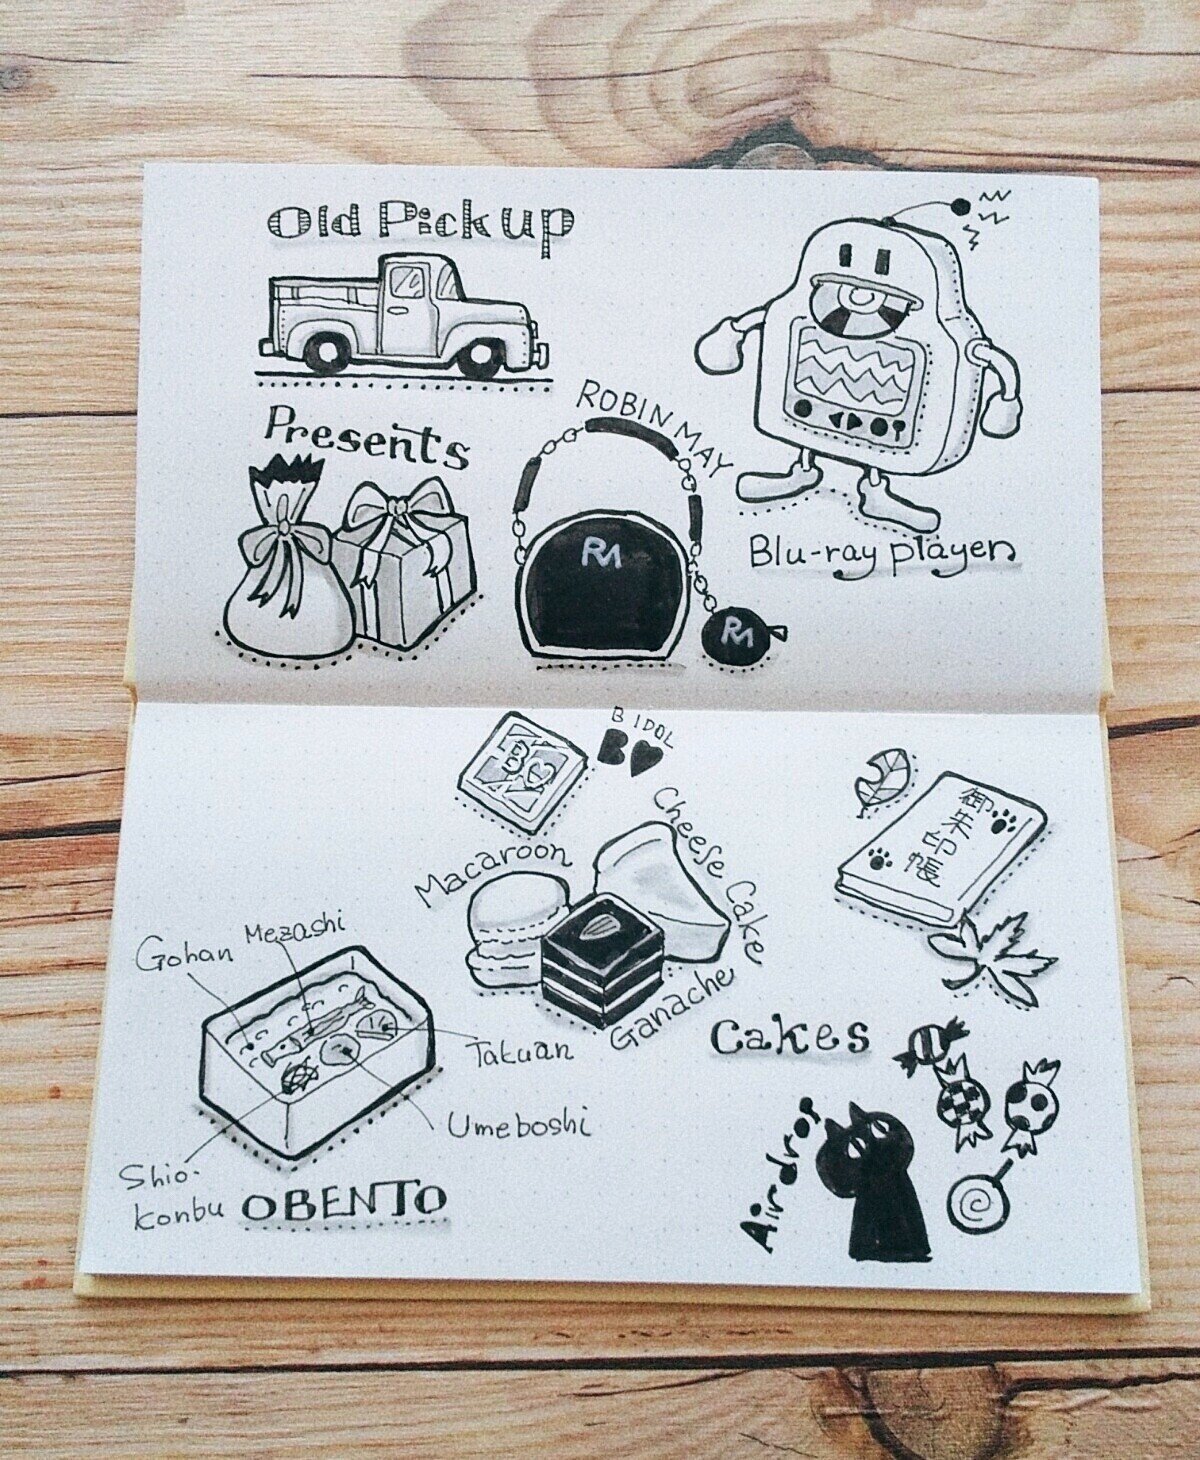 Old Pickup
Presents
ROBIN MAY
RM
RM
Blu-ray player
B IDOL
B
B
Macaroon
Cheese Cake
Ganache
Cakes
御朱印帳
Gohan
Mezashi
Takuan
Umeboshi
Shio-
konbu
OBENTO
Airdrop